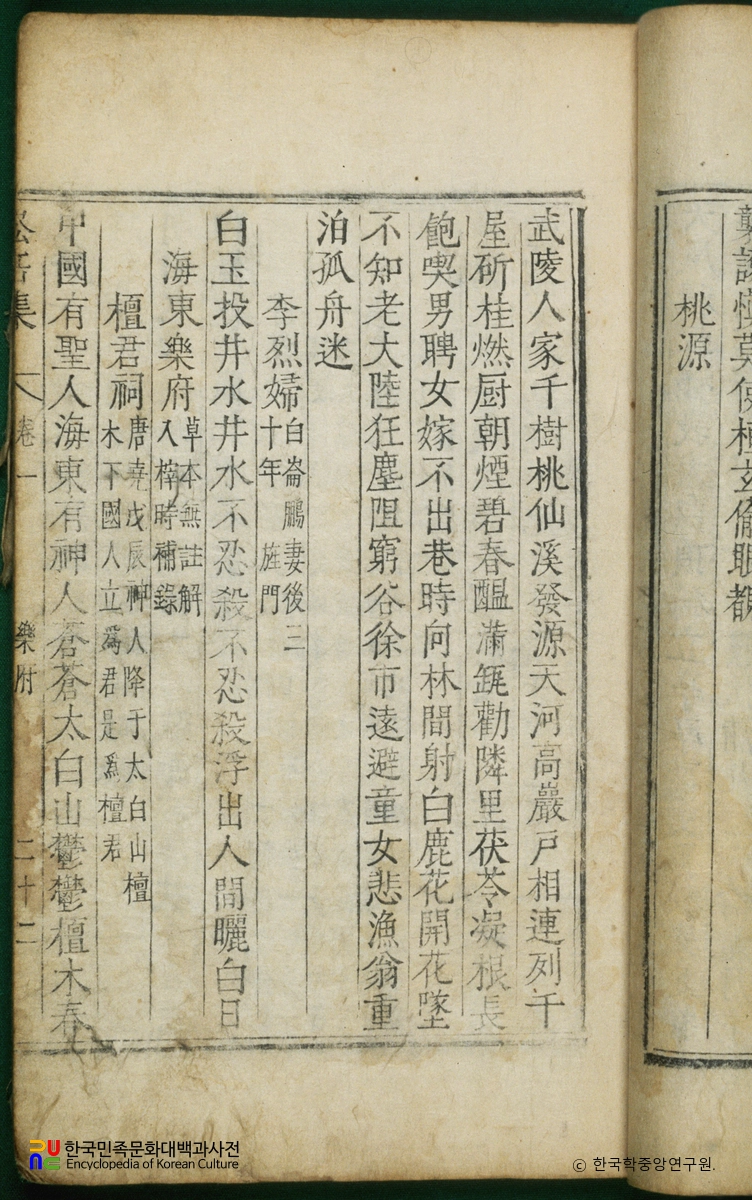 桃源
武陵人家千樹桃仙溪發源天河高巖戶相連列千
屋斫桂燃厨朝煙碧春醞滿𤬪勸隣里茯苓凝根長
飽喫男聘女嫁不出巷時向林間射白鹿花開花墜
不知老大陸狂塵阻窮谷徐市遠避童女悲漁翁重
泊孤舟迷
李烈婦白崙鵬妻後三
十年旌門
白玉投井水井水不忍殺不忍殺浮出人間曬白日
海東樂府草本無註解
入梓時補錄
檀君祠唐堯戊辰神人降于太白山檀
木下國人立爲君是爲檀君
中國有聖人海東有神人蒼蒼太白山鬱鬱檀木春
集 卷一 樂府 二十二
한국민족문화대백과사전
Encyclopedia of Korean Culture
© 한국학중앙연구원.